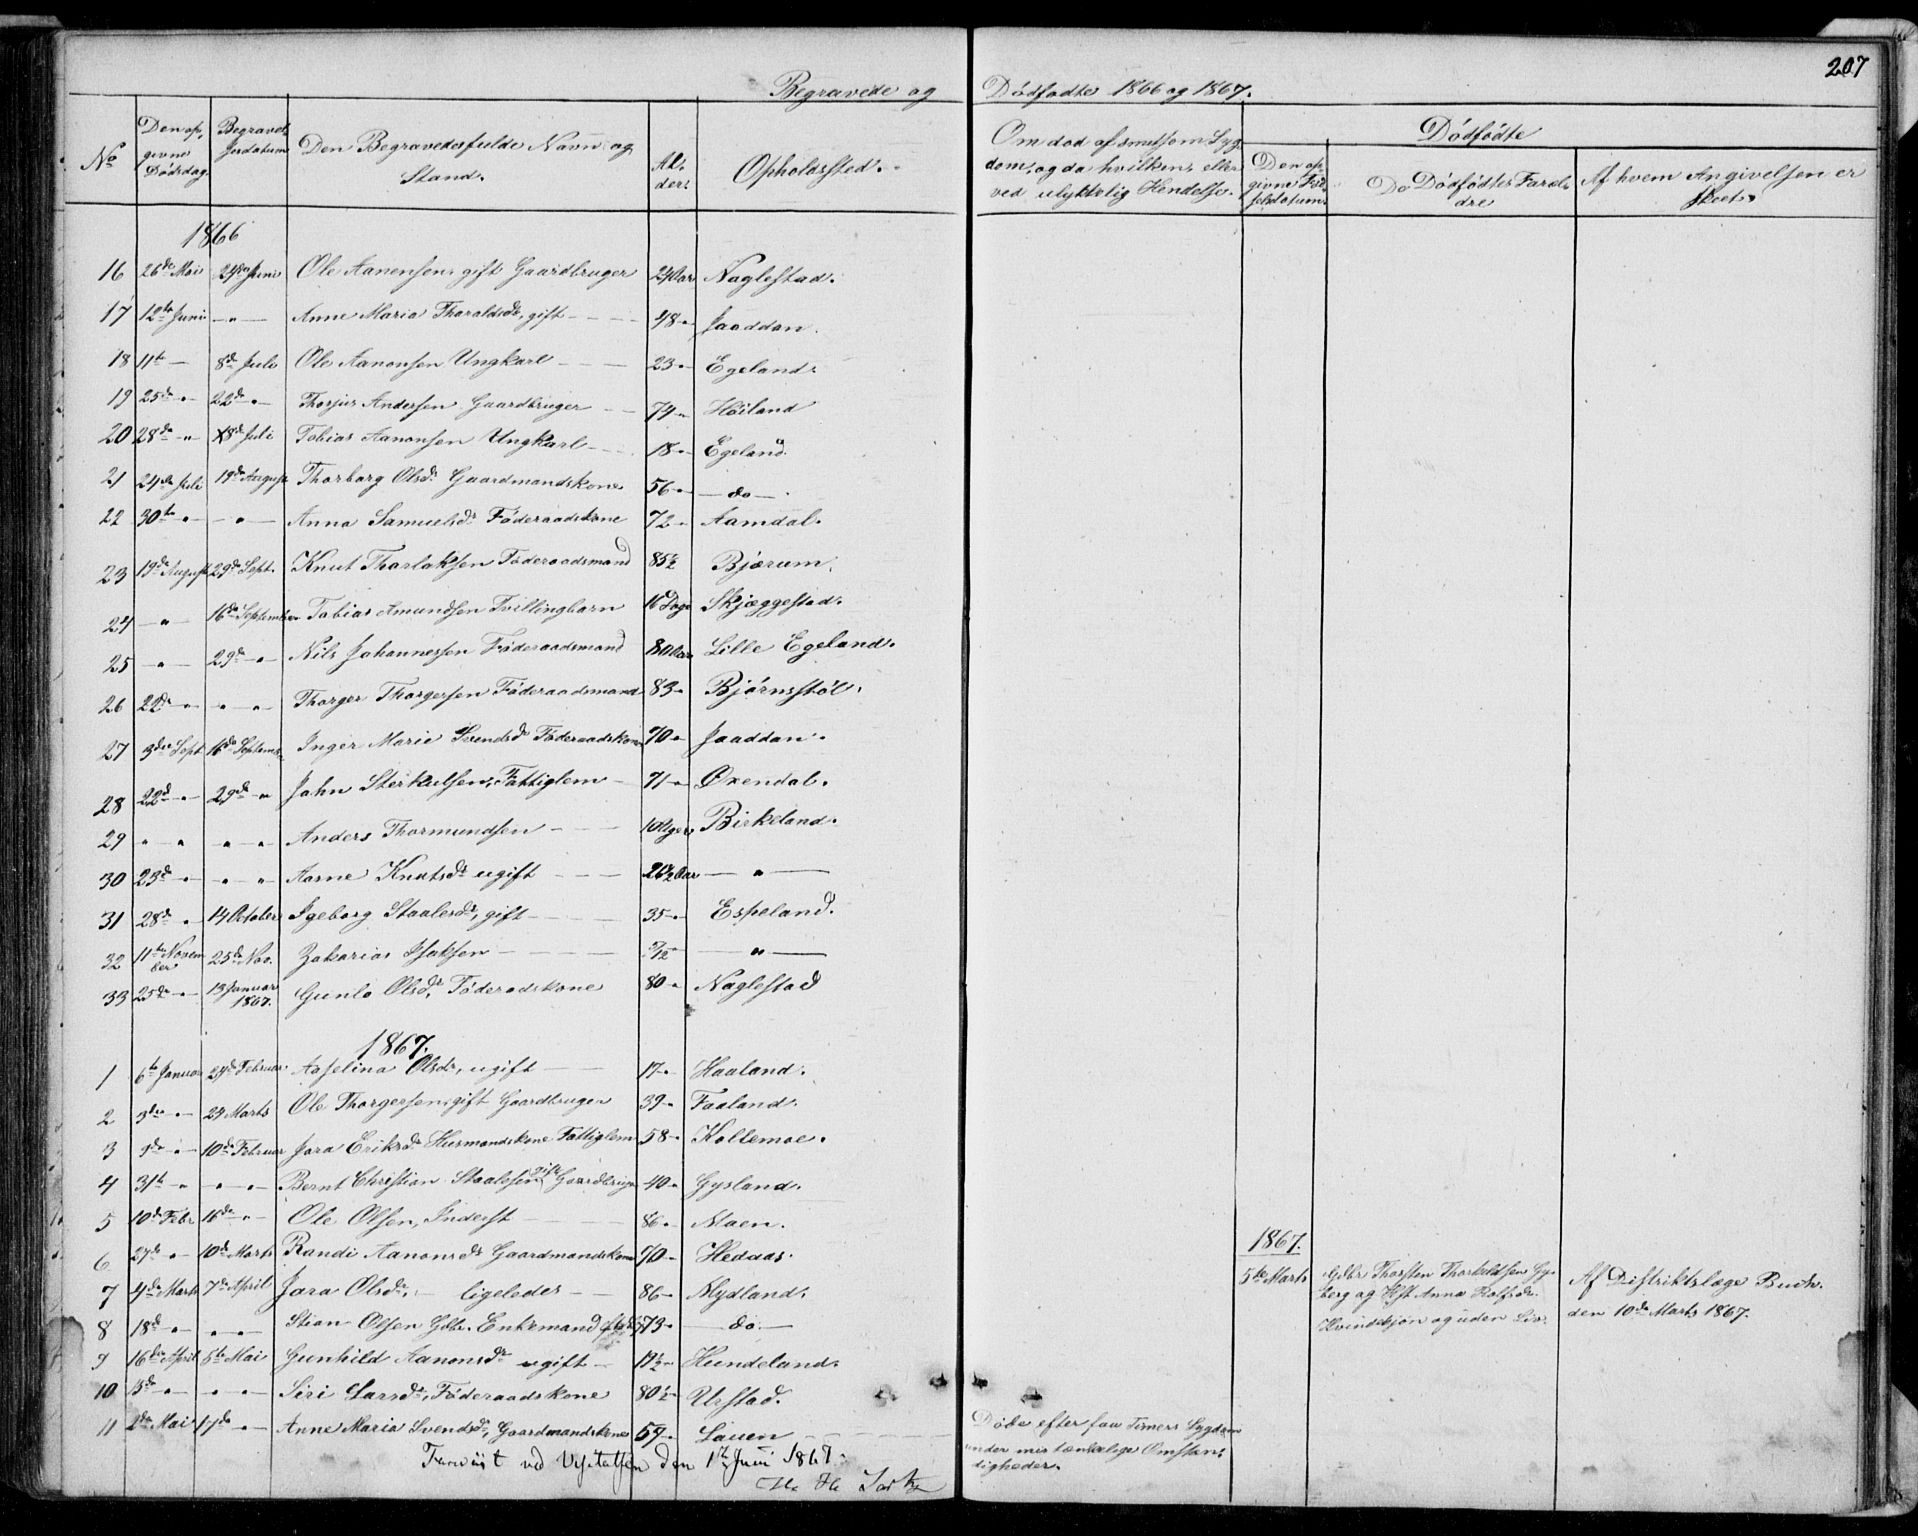 207
Begravede og Dödfödte 1866 og 1867.
No
Den opgivne Dödsdag.
Begravelsesdatum
Den Begravedes fulde Navn og Stand.
Alder.
Opholdssted.
Om död af smitsom Sygdom, og da hvilken, eller ved ulykkelig Hendelse.
Dödfödte
Den opgivne Födselsdatum.
De Dödfödtes Foreldre
Af hvem Angivelsen er skeet.
1866
16 26de Mai 24de Juni Ole Aanensen, gift Gaardbruger 24 Aar Naglestad.
17 12te Juni — " — Anne Maria Tharaldsdr, gift — 48 " Jaaddan.
18 11te — 8de Juli Ole Aanonsen Ungkarl — 23 " Egeland.
19 25de " 22de " Thorjus Andersen Gaardbruger — 74 " Höiland
20 28de " 8de Juli Tobias Aanonsen Ungkarl — 18 " Egeland.
21 24de Juli 19de August Thorborg Olsdr Gaardmandskone 56 " — do —
22 30te " — " — Anna Samuelsdr Föderaadskone 72 " Aamdal.
23 19de August 29de Sept. Knut Thorlaksen Föderaadsmand 85½ Bjærum.
24 — " — 16de September Tobias Amundsen Tvillingbarn 16 Dage Skjæggestad.
25 — " — 29de " Nils Johannessen Föderaadsmand 80 Aar Lille Egeland.
26 22de " " " Thorger Thorgersen Föderaadsmand 83 " Björnsstöl.
27 3die Sept 16de Septemb. Inger Marie Svendsdr Föderaadskone 70 " Jaaddan.
28 22de " 29de " John Sterkulsen, Fattiglem — 71 " Oxendal.
29 " " " " Anders Thormundsen — 10 Uger Birkeland.
30 23de " " " Aasne Knutsdr ugift — 26½ Aar — " —
31 28de " 14 October Igeborg Staalesdr, gift — 35 " Espeland.
32 11te November 25de Nov. Zakarias Isaksen — /12 — " —
33 25de " 13 Januar 1867. Gunlo Olsdr, Föderadskone 80 " Naglestad
1867.
1 6te Januar 24de Februar Aaselina Olsdr, ugift — 17 " Haaland.
2 3die " 24 Marts Ole Thorgersen, gift Gaardbruger 39 " Faaland.
3 9de " 10de Februar Jora Eriksdr Husmandskone Fattiglem 58 " Kollemoe.
4 31te " " " Bernt Christian Staalesen gift Gaardbruger 40 " Gysland.
5 10de Febr 16de " Ole Olsen, Inderst — 86 " Moen.
6 27de " 10de Marts Randi Aanonsdr Gaardmandskone 70 " Hedaas.
1867.
7 4de Marts 7de April Jora Olsdr, — ligeledes — 86 " Mydland.
5te Marts Gdbr Thorsten Thorkildsen Gyberg og Hst Anna Rolfsdr. Kvindekjön og uden Liv.
Af Distriktslæge Buch den 10de Marts 1867.
8 18de " " " Stian Olsen Gdbr. Enkemand 73 " — do —
9 16de April 5te Mai Gunhild Aanonsdr ugift — 19½ " Hundeland.
10 15de " " " Siri Larsdr, Föderaadskone 80½ " Urstad.
11 2de Mai 17de " Anne Maria Svendsdr, Gaardmandskone 59 " Lauen —
Döde efter faa Timers Sygdom under mistænkelige Omstændigheder.
Fremvist ved Visitatsen den 1ste Juni 1867.